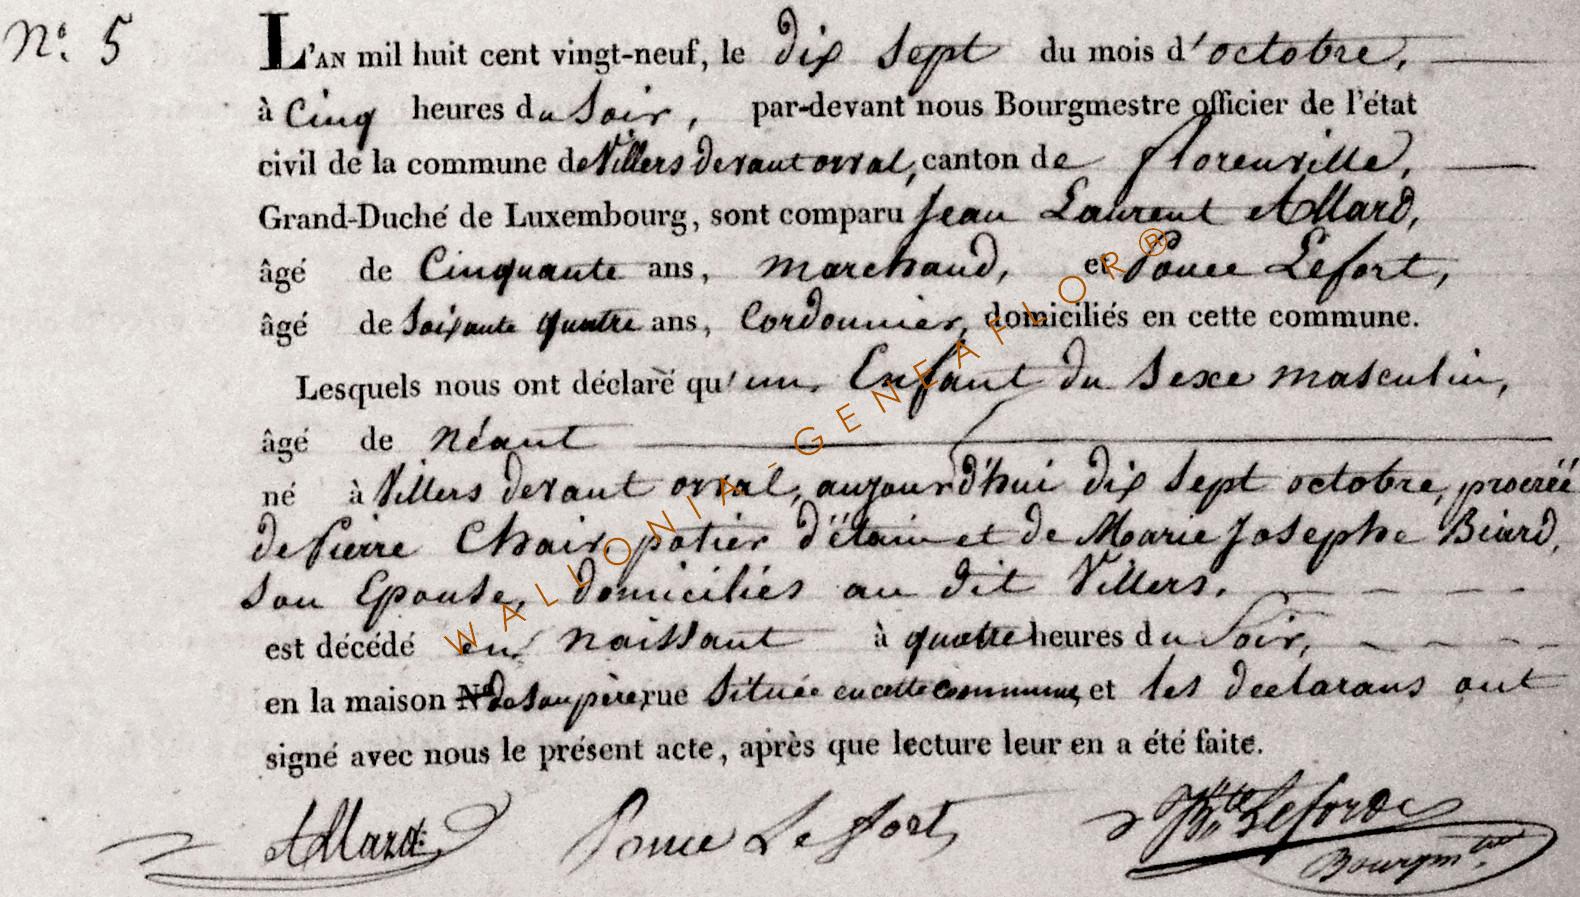 N.º 5
L'AN mil huit cent vingt-neuf, le dix sept du mois d'octobre,
à Cinq heures du Soir, par-devant nous Bourgmestre officier de l'état
civil de la commune de Villers devant orval, canton de florenville,
Grand-Duché de Luxembourg, sont comparu Jean Laurent Allard,
âgé de Cinquante ans, marchand, et Ponce Lefort,
âgé de Soixante quatre ans, Cordonnier, domiciliés en cette commune.
Lesquels nous ont déclaré qu'un Enfant du Sexe masculin,
âgé de néant
né à Villers devant orval, aujourd'hui dix Sept octobre, procréé
de Pierre Choir, potier d'étain et de Marie Josephe Biard,
Son Epouse, domiciliés au dit Villers.
est décédé en naissant à quatre heures du Soir,
en la maison N.º de Son père, rue Située en cette Commune, et les declarans ont
signé avec nous le présent acte, après que lecture leur en a été faite.
Allard Ponce Lefort Lefort
Bourgm.tre
WALLONIA-GENEAFLOR®